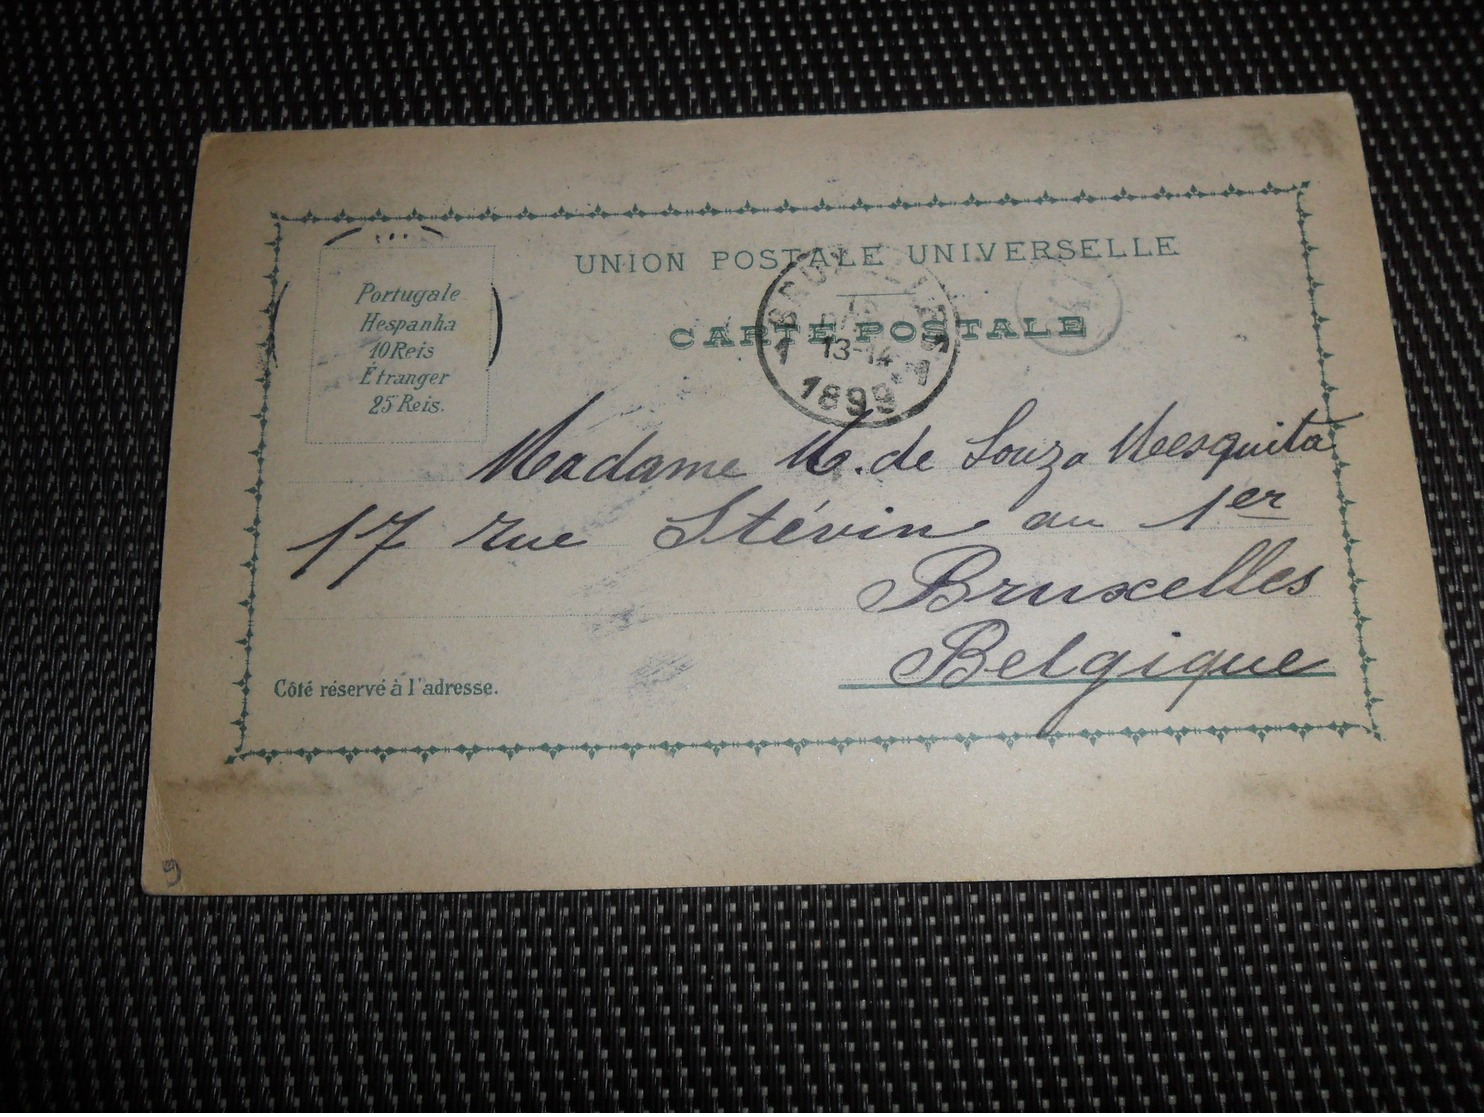 UNION POSTALE UNIVERSELLE
CARTE POSTALE
Portugale
Hespanha
10 Reis
Étranger
25 Reis.
BRUXELLES
13-14
1899
Madame M. de Souza Mesquita
17 rue Stévin au 1er
Bruxelles
Belgique
Côté réservé à l'adresse.